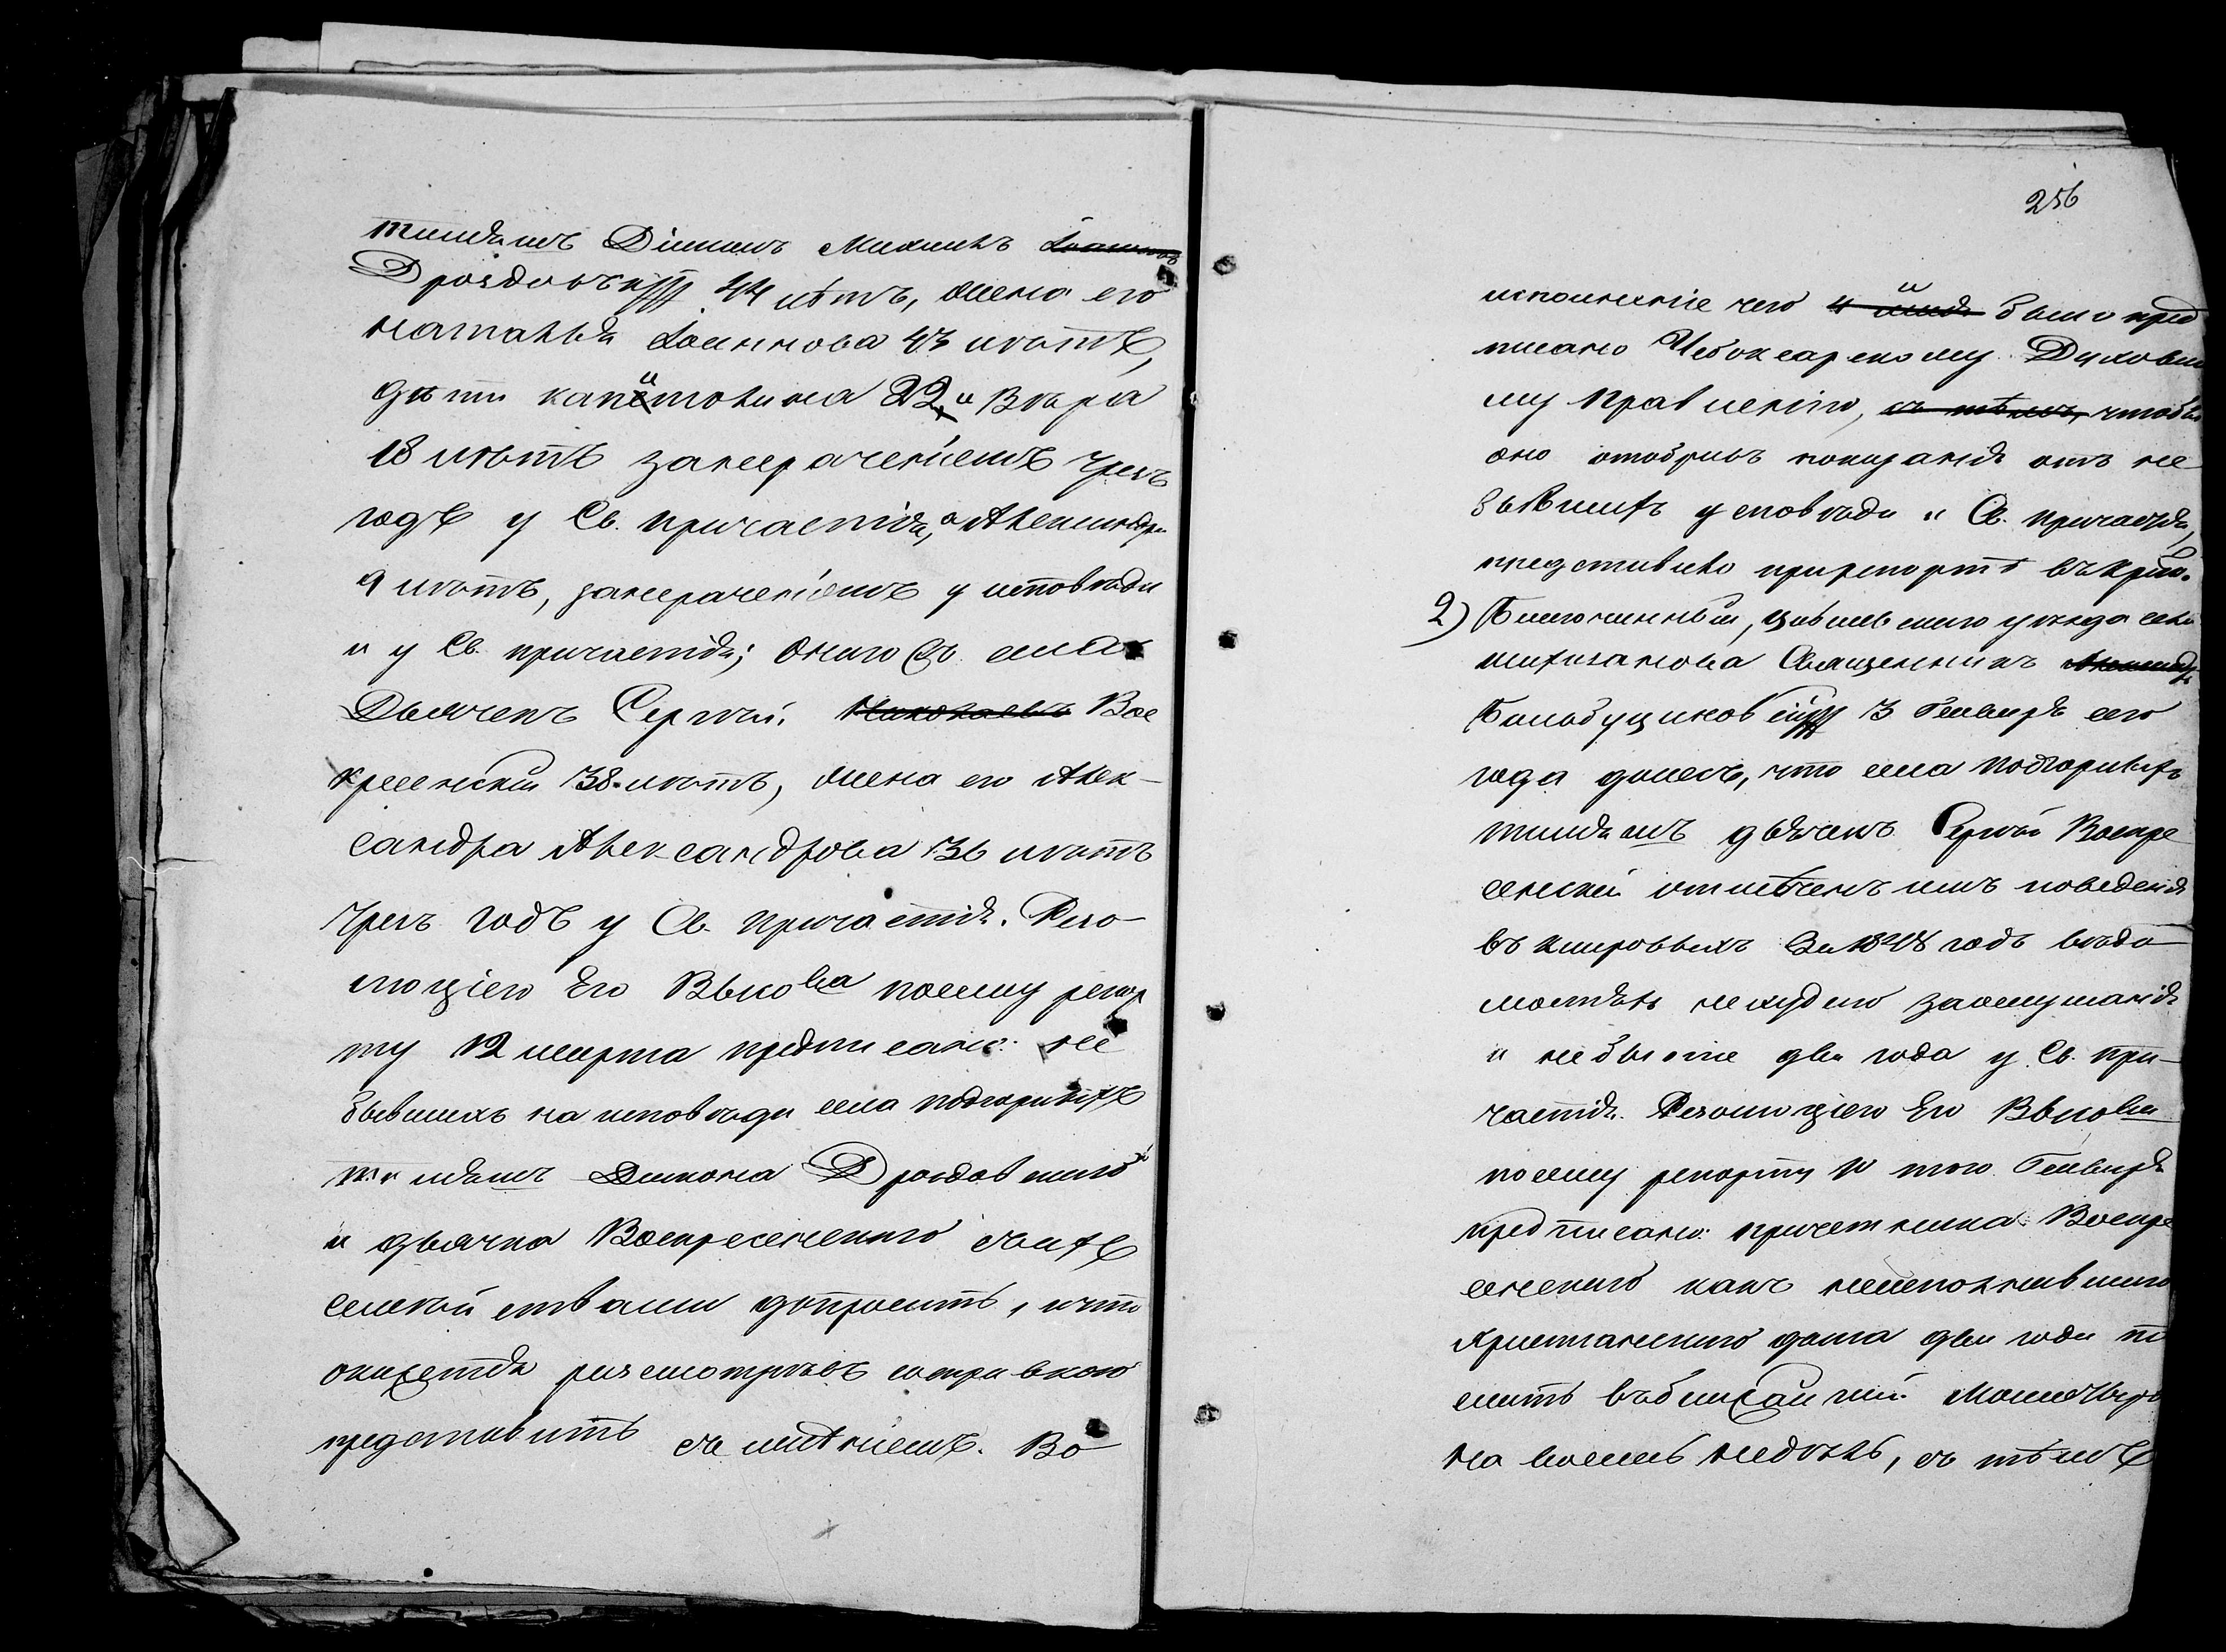 тимяшъ Діаконъ Михаилъ Іоанновъ
Дроздовскій 44 лѣтъ, жена его
Наталья Іоаннова 43 лѣтъ,
дѣти Капитолина 22, и Вѣра
18 лѣтъ за нераченіемъ чрезъ
годъ у Св. причастія, а Александра
9 лѣтъ, за нераченіемъ у исповѣди
и у Св. причастія; Онагожъ села
Дьячекъ Сергѣй Николаевъ Вос
кресенскій 38 лѣтъ, жена его Алек-
сандра Александрова 36 лѣтъ
чрезъ годъ у Св. Причастія. Резо-
люціею Его Высо ва по сему репор
ту 12 марта предписано: не
бывшихъ на исповѣди села Подгорныхъ
тимяшъ Діакона Дроздовскаго
и дьячка Воскресенскаго съ ихъ
семействами допросить, и что
окажется разсмотрѣвъ со справкою
представить съ мнѣніемъ. Во
256
исполненіе чего и было пред
писано Чебоксарскому Духовно
му Правленію, съ тѣмъ, чтобы
оно отобравъ показанія отъ не
бывшихъ у исповѣди и Св. причастія,
представило при репортѣ
2) Благочинный, Цивильскаго уѣзда села
Священникъ Александръ
3 Генваря сего
года донесъ, что села Подгорныхъ
тимяшъ дьячекъ Сергѣй Воскре
сенскій отмѣченъ имъ поведенія
въ клировыхъ за 1848 годъ вѣдо
мостяхъ не худаго за ослушанія
и небытіе два года у Св. При-
частія. Резолюціею Его Высо ва
по сему репорту 10 того Генваря
предписано: причетника Воскре
сенскаго какъ неисполнившаго
христіанскаго долга два года по
слать въ ближайшій Монастырь
на восемь недѣль, съ тѣмъ